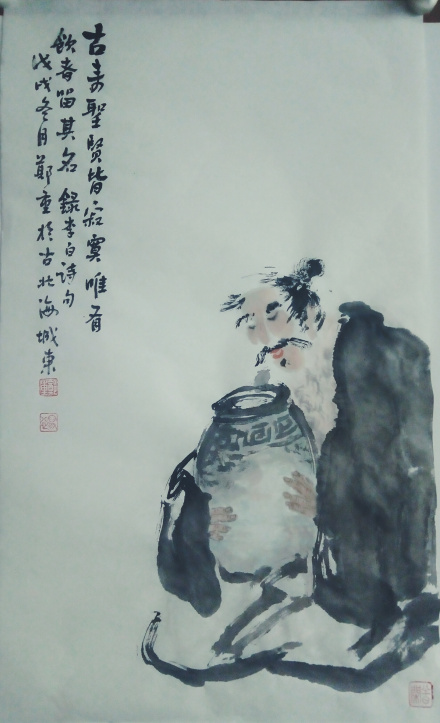 古来聖賢皆寂寞唯有
飲者留其名 錄李白詩句
戊戌冬月鄭重於古北海城東